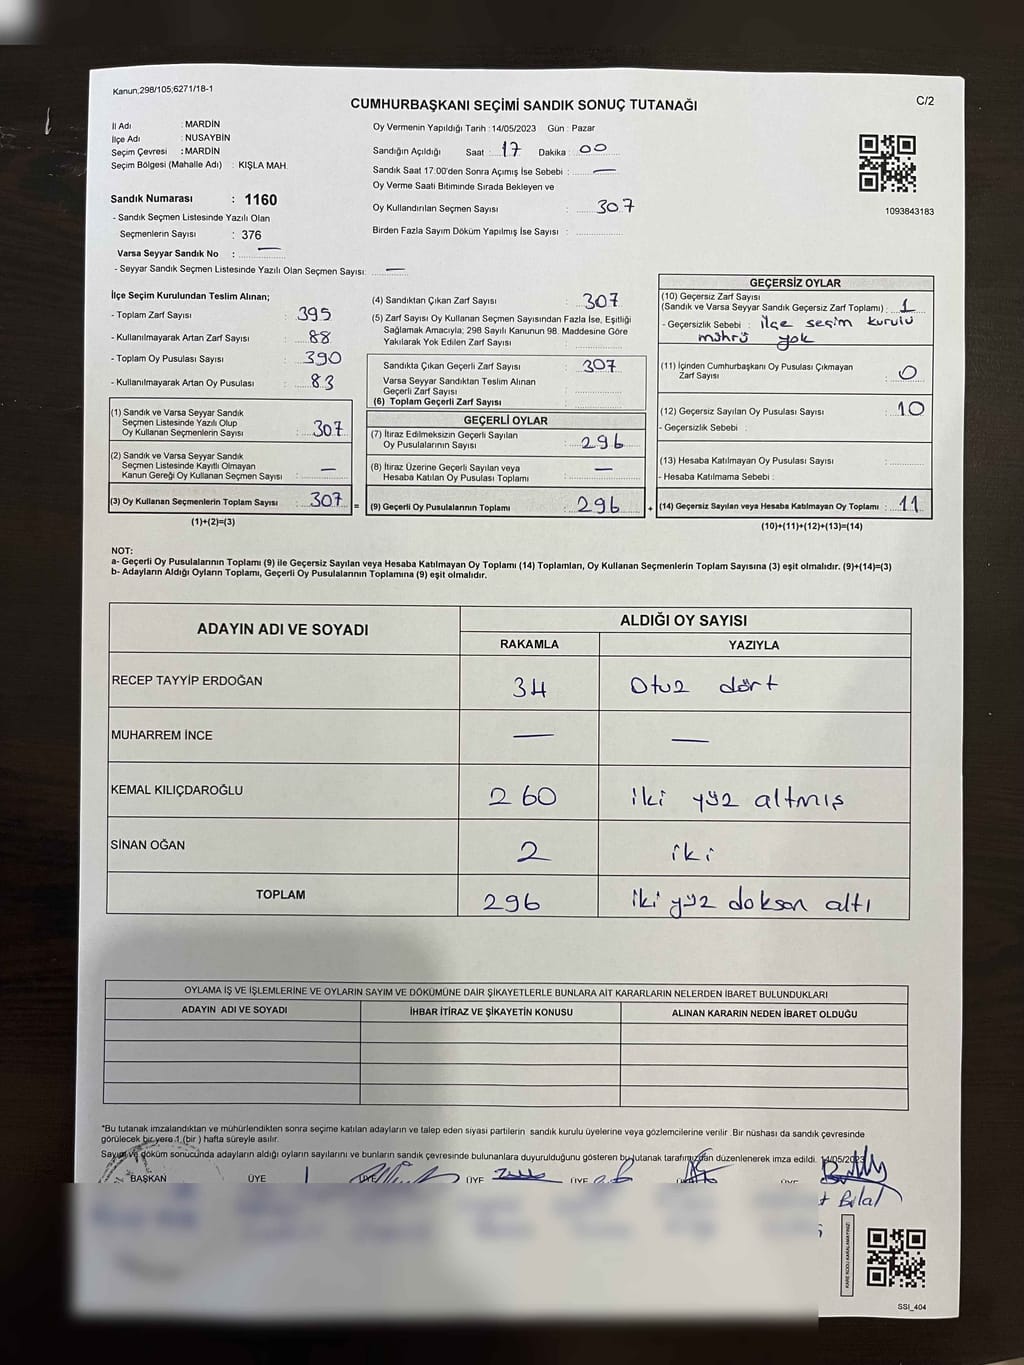 Kanun;298/105;6271/18-1
CUMHURBAŞKANI SEÇİMİ SANDIK SONUÇ TUTANAĞI
C/2
İl Adı : MARDİN
İlçe Adı : NUSAYBİN
Seçim Çevresi : MARDİN
Seçim Bölgesi (Mahalle Adı) : KIŞLA MAH.
Sandık Numarası : 1160
- Sandık Seçmen Listesinde Yazılı Olan
Seçmenlerin Sayısı : 376
Varsa Seyyar Sandık No : —
- Seyyar Sandık Seçmen Listesinde Yazılı Olan Seçmen Sayısı: —
Oy Vermenin Yapıldığı Tarih : 14/05/2023 Gün : Pazar
Sandığın Açıldığı Saat : 17 Dakika : 00
Sandık Saat 17:00'den Sonra Açımış İse Sebebi : —
Oy Verme Saati Bitiminde Sırada Bekleyen ve
Oy Kullandırılan Seçmen Sayısı : 307
Birden Fazla Sayım Döküm Yapılmış İse Sayısı :
1093843183
İlçe Seçim Kurulundan Teslim Alınan;
- Toplam Zarf Sayısı : 395
- Kullanılmayarak Artan Zarf Sayısı : 88
- Toplam Oy Pusulası Sayısı : 390
- Kullanılmayarak Artan Oy Pusulası : 83
(1) Sandık ve Varsa Seyyar Sandık
Seçmen Listesinde Yazılı Olup
Oy Kullanan Seçmenlerin Sayısı : 307
(2) Sandık ve Varsa Seyyar Sandık
Seçmen Listesinde Kayıtlı Olmayan
Kanun Gereği Oy Kullanan Seçmen Sayısı : —
(3) Oy Kullanan Seçmenlerin Toplam Sayısı : 307 =
(1)+(2)=(3)
(4) Sandıktan Çıkan Zarf Sayısı : 307
(5) Zarf Sayısı Oy Kullanan Seçmen Sayısından Fazla İse, Eşitliği
Sağlamak Amacıyla; 298 Sayılı Kanunun 98. Maddesine Göre
Yakılarak Yok Edilen Zarf Sayısı :
Sandıkta Çıkan Geçerli Zarf Sayısı : 307
Varsa Seyyar Sandıktan Teslim Alınan
Geçerli Zarf Sayısı :
(6) Toplam Geçerli Zarf Sayısı :
GEÇERLİ OYLAR
(7) İtiraz Edilmeksizin Geçerli Sayılan
Oy Pusulalarının Sayısı : 296
(8) İtiraz Üzerine Geçerli Sayılan veya
Hesaba Katılan Oy Pusulası Toplamı : —
(9) Geçerli Oy Pusulalarının Toplamı : 296 +
GEÇERSİZ OYLAR
(10) Geçersiz Zarf Sayısı
(Sandık ve Varsa Seyyar Sandık Geçersiz Zarf Toplamı) : 1
- Geçersizlik Sebebi : ilçe seçim kurulu
mührü yok
(11) İçinden Cumhurbaşkanı Oy Pusulası Çıkmayan
Zarf Sayısı : 0
(12) Geçersiz Sayılan Oy Pusulası Sayısı : 10
- Geçersizlik Sebebi :
(13) Hesaba Katılmayan Oy Pusulası Sayısı :
- Hesaba Katılmama Sebebi :
(14) Geçersiz Sayılan veya Hesaba Katılmayan Oy Toplamı : 11
(10)+(11)+(12)+(13)=(14)
NOT:
a- Geçerli Oy Pusulalarının Toplamı (9) ile Geçersiz Sayılan veya Hesaba Katılmayan Oy Toplamı (14) Toplamları, Oy Kullanan Seçmenlerin Toplam Sayısına (3) eşit olmalıdır. (9)+(14)=(3)
b- Adayların Aldığı Oyların Toplamı, Geçerli Oy Pusulalarının Toplamına (9) eşit olmalıdır.
ADAYIN ADI VE SOYADI
ALDIĞI OY SAYISI
RAKAMLA YAZIYLA
RECEP TAYYİP ERDOĞAN 34 Otuz dört
MUHARREM İNCE — —
KEMAL KILIÇDAROĞLU 260 iki yüz altmış
SİNAN OĞAN 2 iki
TOPLAM 296 iki yüz doksan altı
OYLAMA İŞ VE İŞLEMLERİNE VE OYLARIN SAYIM VE DÖKÜMÜNE DAİR ŞİKAYETLERLE BUNLARA AİT KARARLARIN NELERDEN İBARET BULUNDUKLARI
ADAYIN ADI VE SOYADI İHBAR İTİRAZ VE ŞİKAYETİN KONUSU ALINAN KARARIN NEDEN İBARET OLDUĞU
*Bu tutanak imzalandıktan ve mühürlendikten sonra seçime katılan adayların ve talep eden siyasi partilerin sandık kurulu üyelerine veya gözlemcilerine verilir .Bir nüshası da sandık çevresinde
görülecek bir yere 1 (bir ) hafta süreyle asılır.
Sayım ve döküm sonucunda adayların aldığı oyların sayılarını ve bunların sandık çevresinde bulunanlara duyurulduğunu gösteren bu tutanak tarafımızdan düzenlenerek imza edildi. 14/05/2023
BAŞKAN ÜYE ÜYE ÜYE ÜYE
Bilal
SSI_404